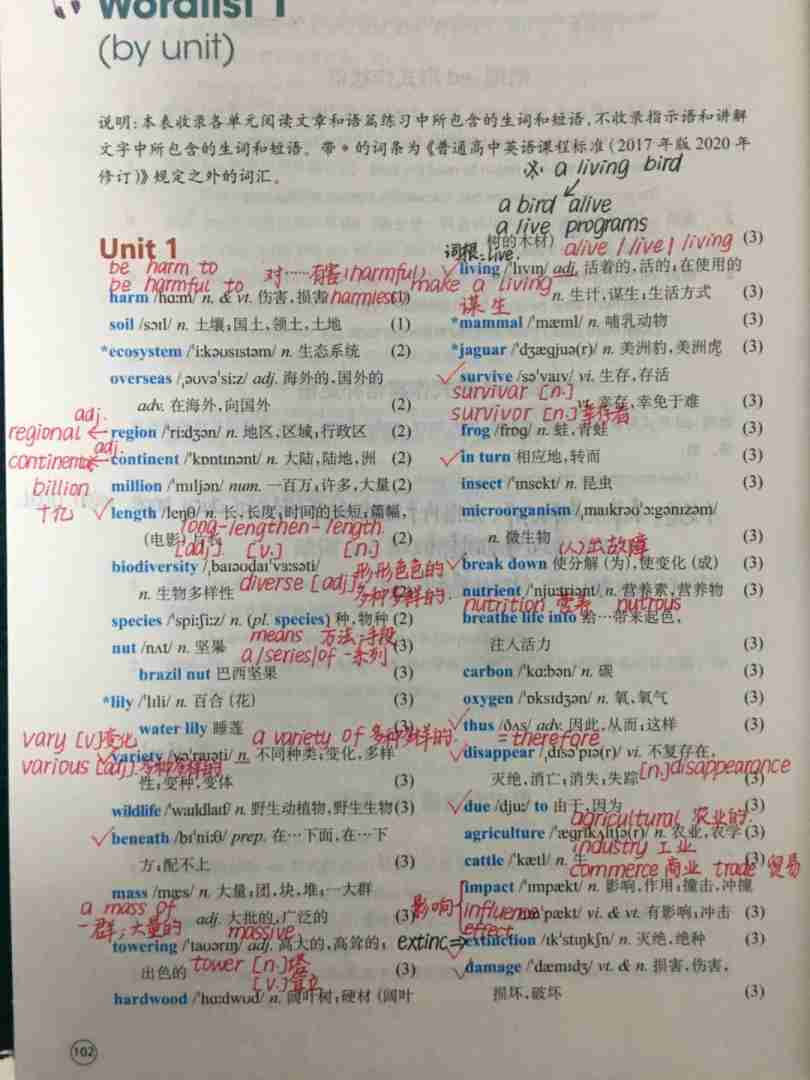 Wordlist 1
(by unit)
说明:本表收录各单元阅读文章和语篇练习中所包含的生词和短语,不收录指示语和讲解
文字中所包含的生词和短语。带*的词条为《普通高中英语课程标准(2017年版2020年
修订)》规定之外的词汇。
※ a living bird
a bird alive
a live programs
Unit 1
be harm to
be harmful to 对……有害(harmful)
harm /hɑːm/ n. & vt. 伤害,损害 harmless (1)
soil /sɔɪl/ n. 土壤;国土,领土,土地 (1)
*ecosystem /ˈiːkəʊsɪstəm/ n. 生态系统 (2)
overseas /ˌəʊvəˈsiːz/ adj. 海外的,国外的
adv. 在海外,向国外 (2)
adj.
regional ← region /ˈriːdʒən/ n. 地区,区域;行政区 (2)
adj.
continental ← continent /ˈkɒntɪnənt/ n. 大陆,陆地,洲 (2)
billion million /ˈmɪljən/ num. 一百万;许多,大量 (2)
十亿 length /leŋθ/ n. 长,长度;时间的长短;篇幅,
long-lengthen-length
(电影)片长 (2)
[adj.] [v.] [n.]
biodiversity /ˌbaɪəʊdaɪˈvɜːsəti/ 形形色色的
n. 生物多样性 diverse [adj.] 多种多样的. (2)
species /ˈspiːʃiːz/ n. (pl. species) 种,物种 (2)
nut /nʌt/ n. 坚果 means 方法;手段 (3)
a/series/of 一系列
brazil nut 巴西坚果 (3)
*lily /ˈlɪli/ n. 百合(花) (3)
water lily 睡莲 (3)
vary [v.]变化 a variety of 多种多样的.
variety /vəˈraɪəti/ n. 不同种类;变化,多样
various [adj.]多种多样的
性;变种,变体 (3)
wildlife /ˈwaɪldlaɪf/ n. 野生动植物,野生生物 (3)
beneath /bɪˈniːθ/ prep. 在…下面,在…下
方;配不上 (3)
mass /mæs/ n. 大量;团,块,堆;一大群
a mass of
adj. 大批的,广泛的 (3)
一群;大量的 massive
towering /ˈtaʊərɪŋ/ adj. 高大的,高耸的;
出色的 tower [n.]塔 (3)
[v.]耸立
hardwood /ˈhɑːdwʊd/ n. 阔叶树;硬材(阔叶
树的木材) (3)
词根:live. alive / live / living
living /ˈlɪvɪŋ/ adj. 活着的,活的;在使用的
make a living n. 生计,谋生;生活方式 (3)
谋生
*mammal /ˈmæml/ n. 哺乳动物 (3)
*jaguar /ˈdʒæɡjuə(r)/ n. 美洲豹,美洲虎 (3)
survive /səˈvaɪv/ vi. 生存,存活
survivar [n.]
vt. 幸存,幸免于难 (3)
survivor [n.]幸存者
frog /frɒɡ/ n. 蛙,青蛙 (3)
in turn 相应地,转而 (3)
insect /ˈɪnsekt/ n. 昆虫 (3)
microorganism /ˌmaɪkrəʊˈɔːɡənɪzəm/
n. 微生物 (3)
(人)出故障
break down 使分解(为),使变化(成) (3)
nutrient /ˈnjuːtriənt/ n. 营养素,营养物 (3)
nutrition 营养 nutrous
breathe life into 给…带来起色,
注入活力 (3)
carbon /ˈkɑːbən/ n. 碳 (3)
oxygen /ˈɒksɪdʒən/ n. 氧,氧气 (3)
thus /ðʌs/ adv. 因此,从而;这样 (3)
= therefore
disappear /ˌdɪsəˈpɪə(r)/ vi. 不复存在,
灭绝,消亡;消失,失踪 (3)
[n.]disappearance
due /djuː/ to 由于,因为 (3)
agricultural 农业的.
agriculture /ˈæɡrɪkʌltʃə(r)/ n. 农业,农学 (3)
industry 工业
cattle /ˈkætl/ n. 牛 (3)
commerce 商业 trade 贸易
impact /ˈɪmpækt/ n. 影响,作用;撞击,冲撞
影响 influence /ɪmˈpækt/ vi. & vt. 有影响;冲击 (3)
effect
extinc ⇒ extinction /ɪkˈstɪŋkʃn/ n. 灭绝,绝种 (3)
damage /ˈdæmɪdʒ/ vt. & n. 损害,伤害,
损坏,破坏 (3)
102